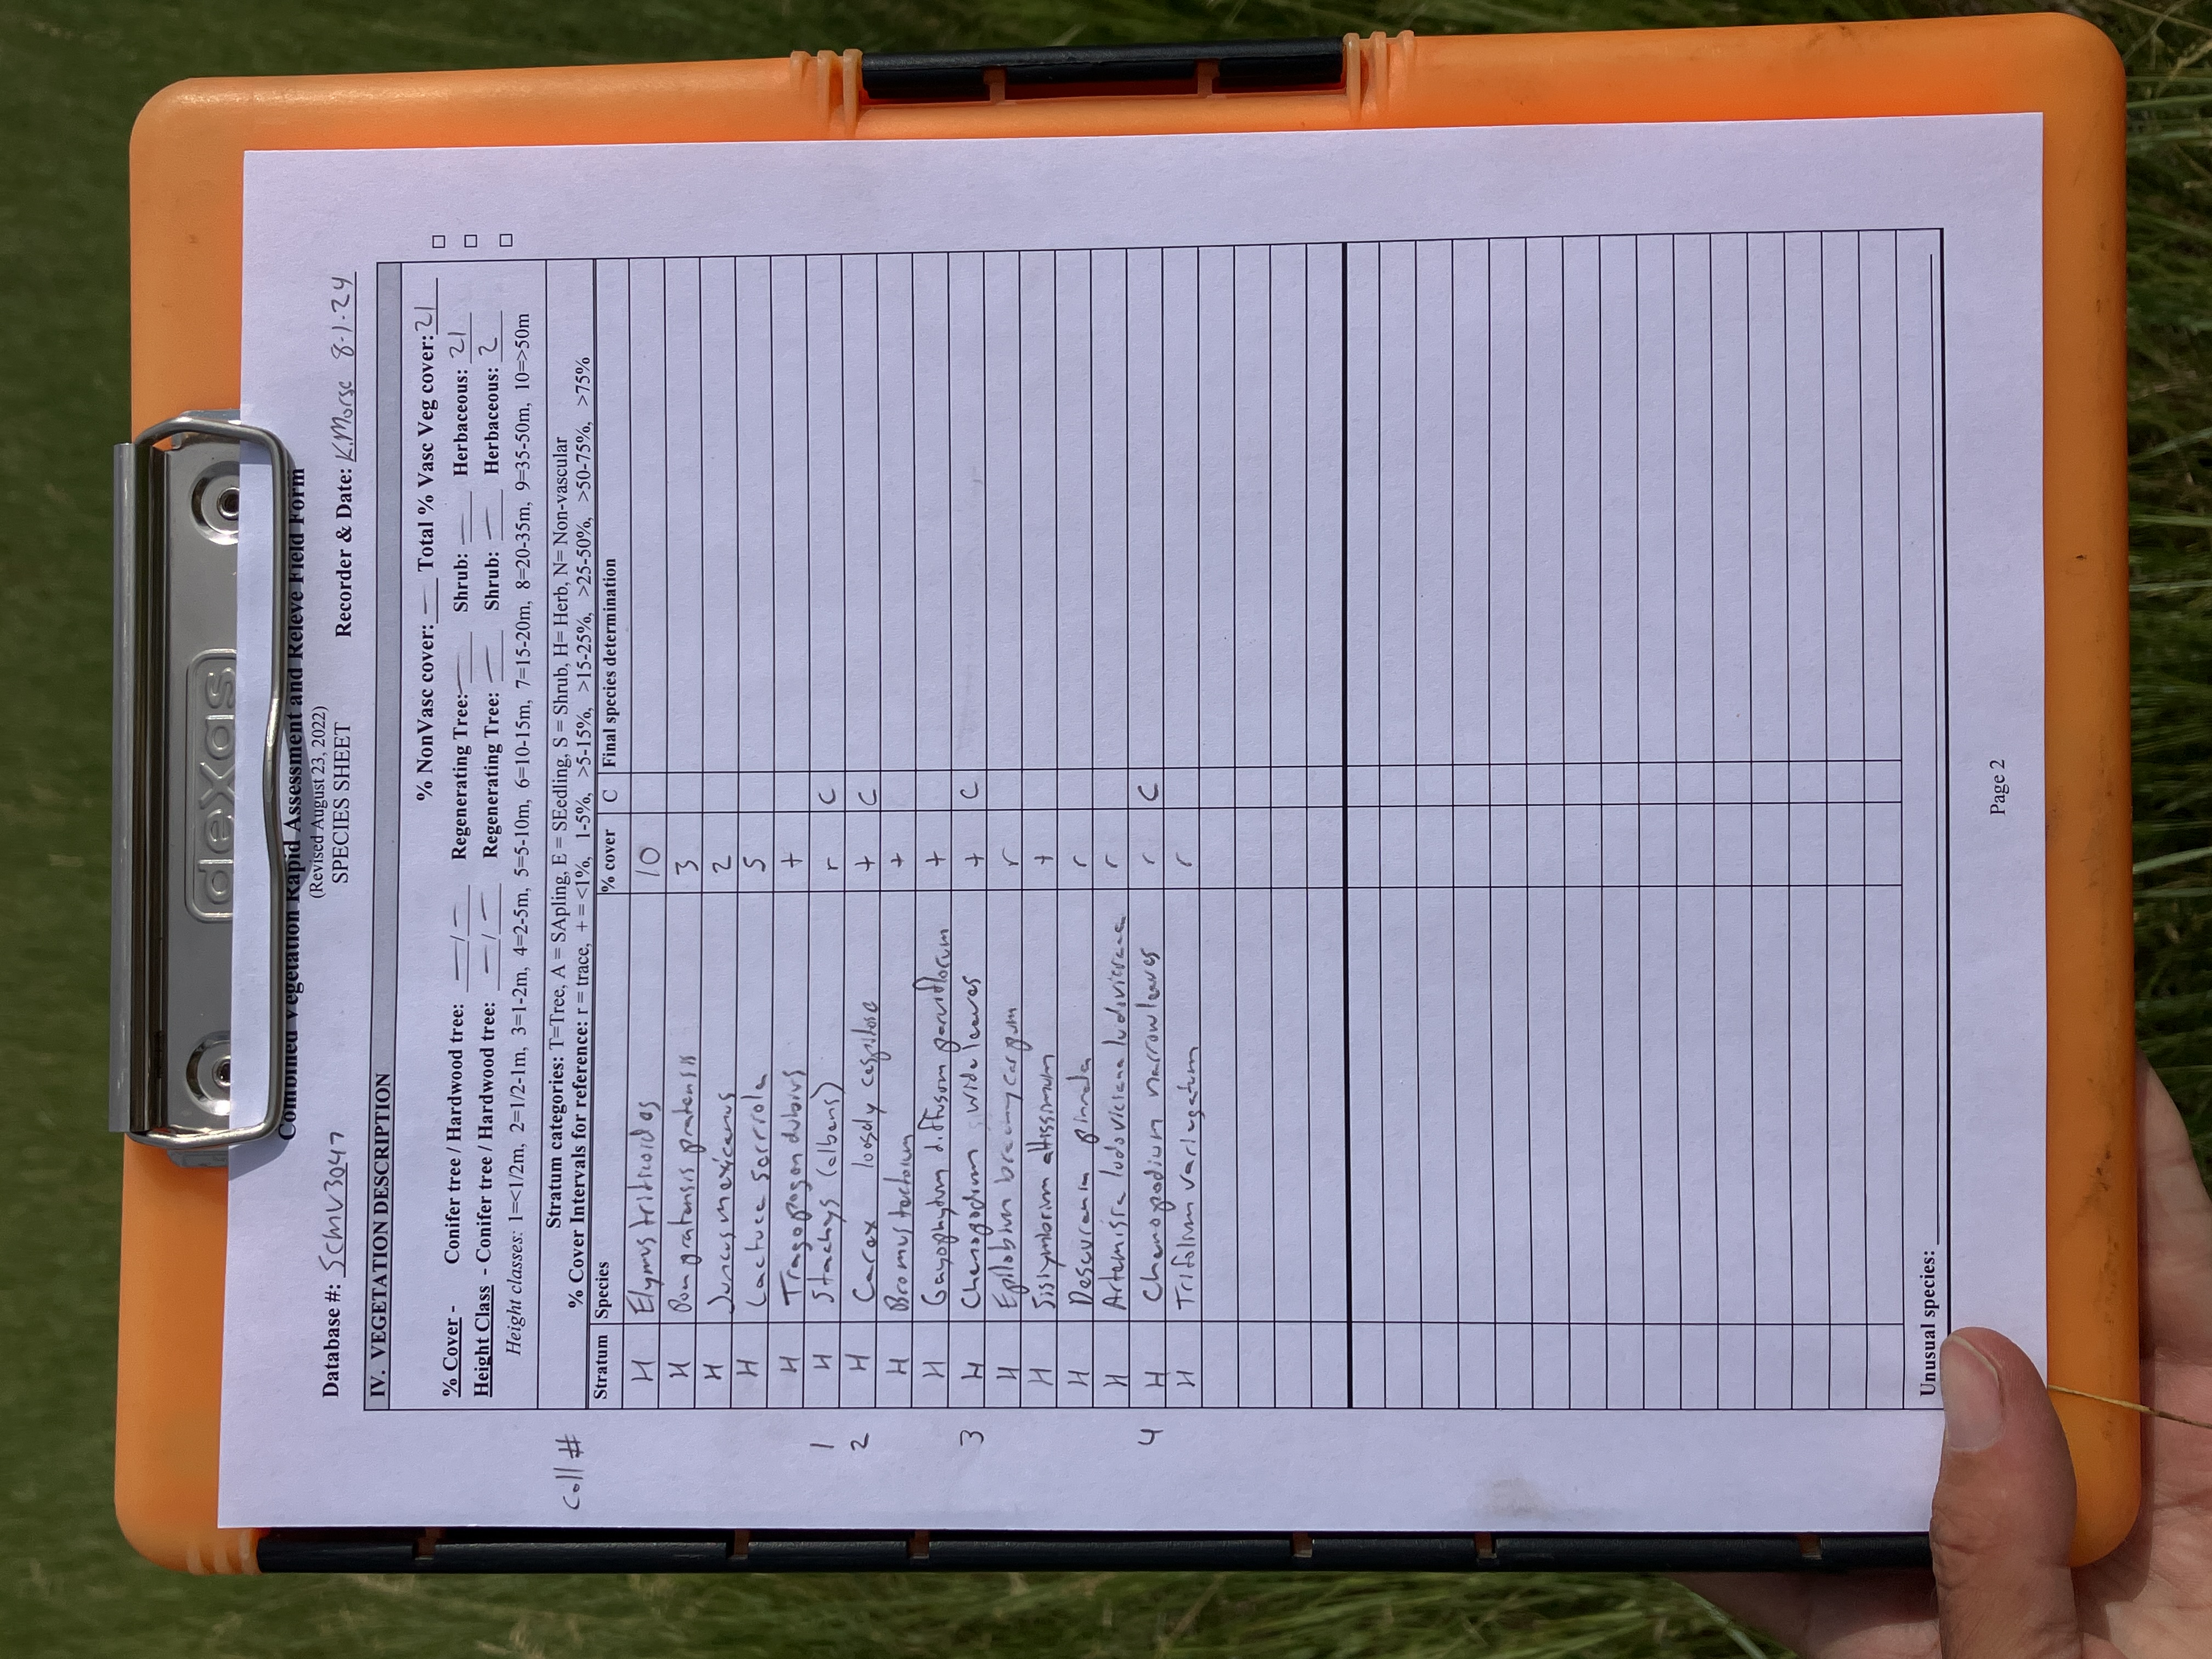 dexas
Combined Vegetation Rapid Assessment and Releve Field Form
(Revised August 23, 2022)
SPECIES SHEET
Database #: SCMV3047 Recorder & Date: K.Morse 8-1-24
IV. VEGETATION DESCRIPTION
% NonVasc cover: — Total % Vasc Veg cover: 21 □
% Cover - Conifer tree / Hardwood tree: — / — Regenerating Tree: — Shrub: — Herbaceous: 21 □
Height Class - Conifer tree / Hardwood tree: — / — Regenerating Tree: — Shrub: — Herbaceous: 2 □
Height classes: 1=<1/2m, 2=1/2-1m, 3=1-2m, 4=2-5m, 5=5-10m, 6=10-15m, 7=15-20m, 8=20-35m, 9=35-50m, 10=>50m
Stratum categories: T=Tree, A = SApling, E = SEedling, S = Shrub, H= Herb, N= Non-vascular
% Cover Intervals for reference: r = trace, + = <1%, 1-5%, >5-15%, >15-25%, >25-50%, >50-75%, >75%
Coll # Stratum Species % cover C Final species determination
H Elymus triticoides 10
H Poa pratensis pratensis 3
H Juncus mexicanus 2
H Lactuca serriola 5
H Tragopogon dubius +
1 H Stachys (albens) r C
2 H Carex loosely cespitose + C
H Bromus tectorum +
H Gayophytum diffusum parviflorum +
3 H Chenopodium wide leaves + C
H Epilobium brachycarpum r
H Sisymbrium altissimum +
H Descurainia pinnata r
H Artemisia ludoviciana ludoviciana r
4 H Chenopodium narrow leaves r C
H Trifolium variegatum r
Unusual species:
Page 2